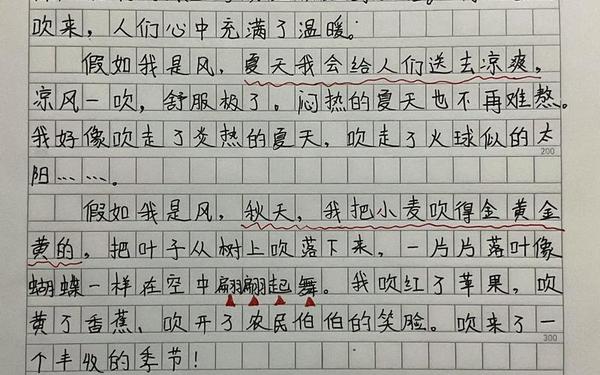 吹来，人们心中充满了温暖。
假如我是风，夏天我会给人们送去凉爽，
凉风一吹，舒服极了。闷热的夏天也不再难熬。
我好像吹走了炎热的夏天，吹走了火球似的太
200
阳……。
假如我是风，秋天，我把小麦吹得金黄金
黄的，把叶子从树上吹落下来，一片片落叶像
蝴蝶一样在空中翩翩起舞。我吹红了苹果，吹
黄了香蕉、吹开了农民伯伯的笑脸。吹来了一
300
个丰收的季节！